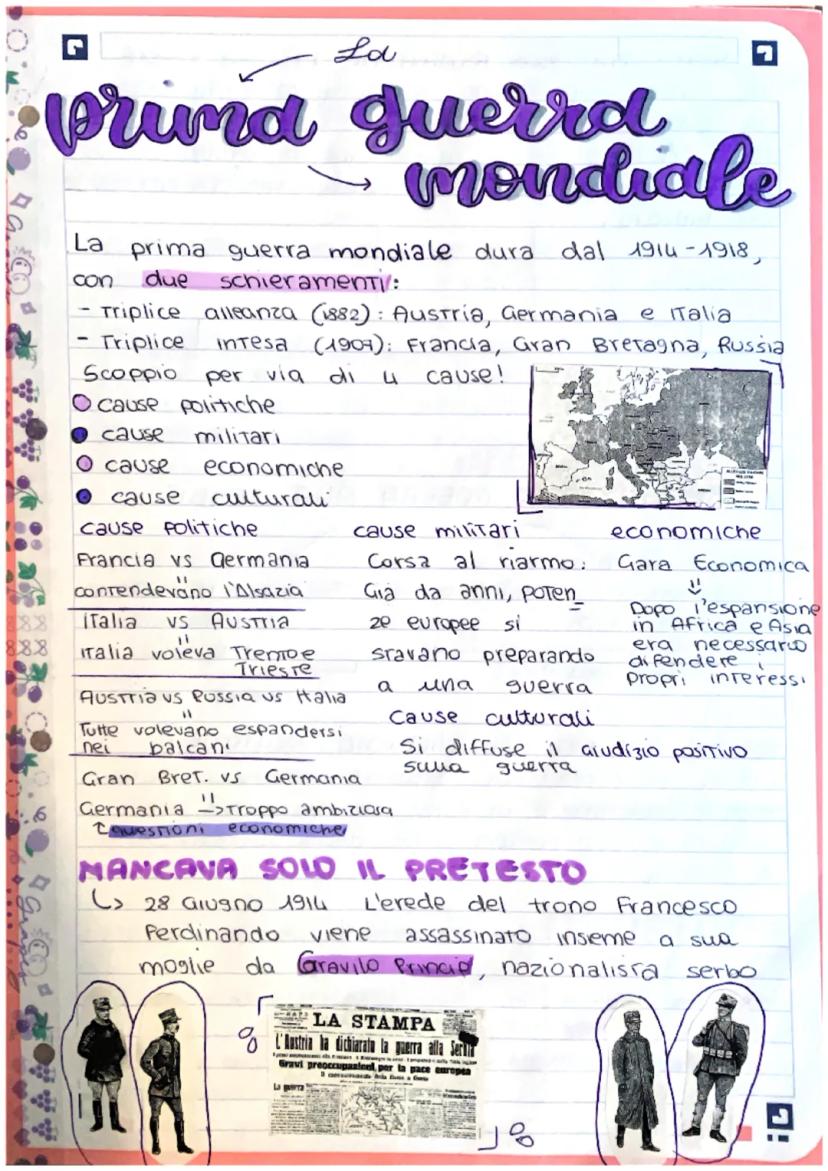 La
prima guerra
mondiale
La prima guerra mondiale dura dal 1914-1918,
con due schieramenti:
- Triplice alleanza (1882): Austria, Germania e Italia
- Triplice intesa (1907): Francia, Gran Bretagna, Russia
Scoppio per via di 4 cause!
cause politiche
cause militari
cause economiche
cause culturali
cause politiche
Francia vs Germania
contendevano l'Alsazia
Italia vs Austria
Italia voleva Trento e
Trieste
Austria vs Russia vs Italia
Tutte volevano espandersi
nei balcani
Gran Bret. vs Germania
Germania -> troppo ambiziosa
questioni economiche
cause militari
Corsa al riarmo:
Già da anni, poten
ze europee si
stavano preparando
a una guerra
Cause culturali
Si diffuse il giudizio positivo
sulla guerra
economiche
Gara Economica
Dopo l'espansione
in Africa e Asia
era necessario
difendere i
propri interessi
MANCAVA SOLO IL PRETESTO
28 Giugno 1914 L'erede del trono Francesco
Ferdinando viene assassinato inseme a sua
moglie da Gravilo Princip, nazionalista serbo
LA STAMPA
L'Austria ha dichiarato la guerra alla Serbia
Gravi preoccupazioni per la pace europea
La guerra